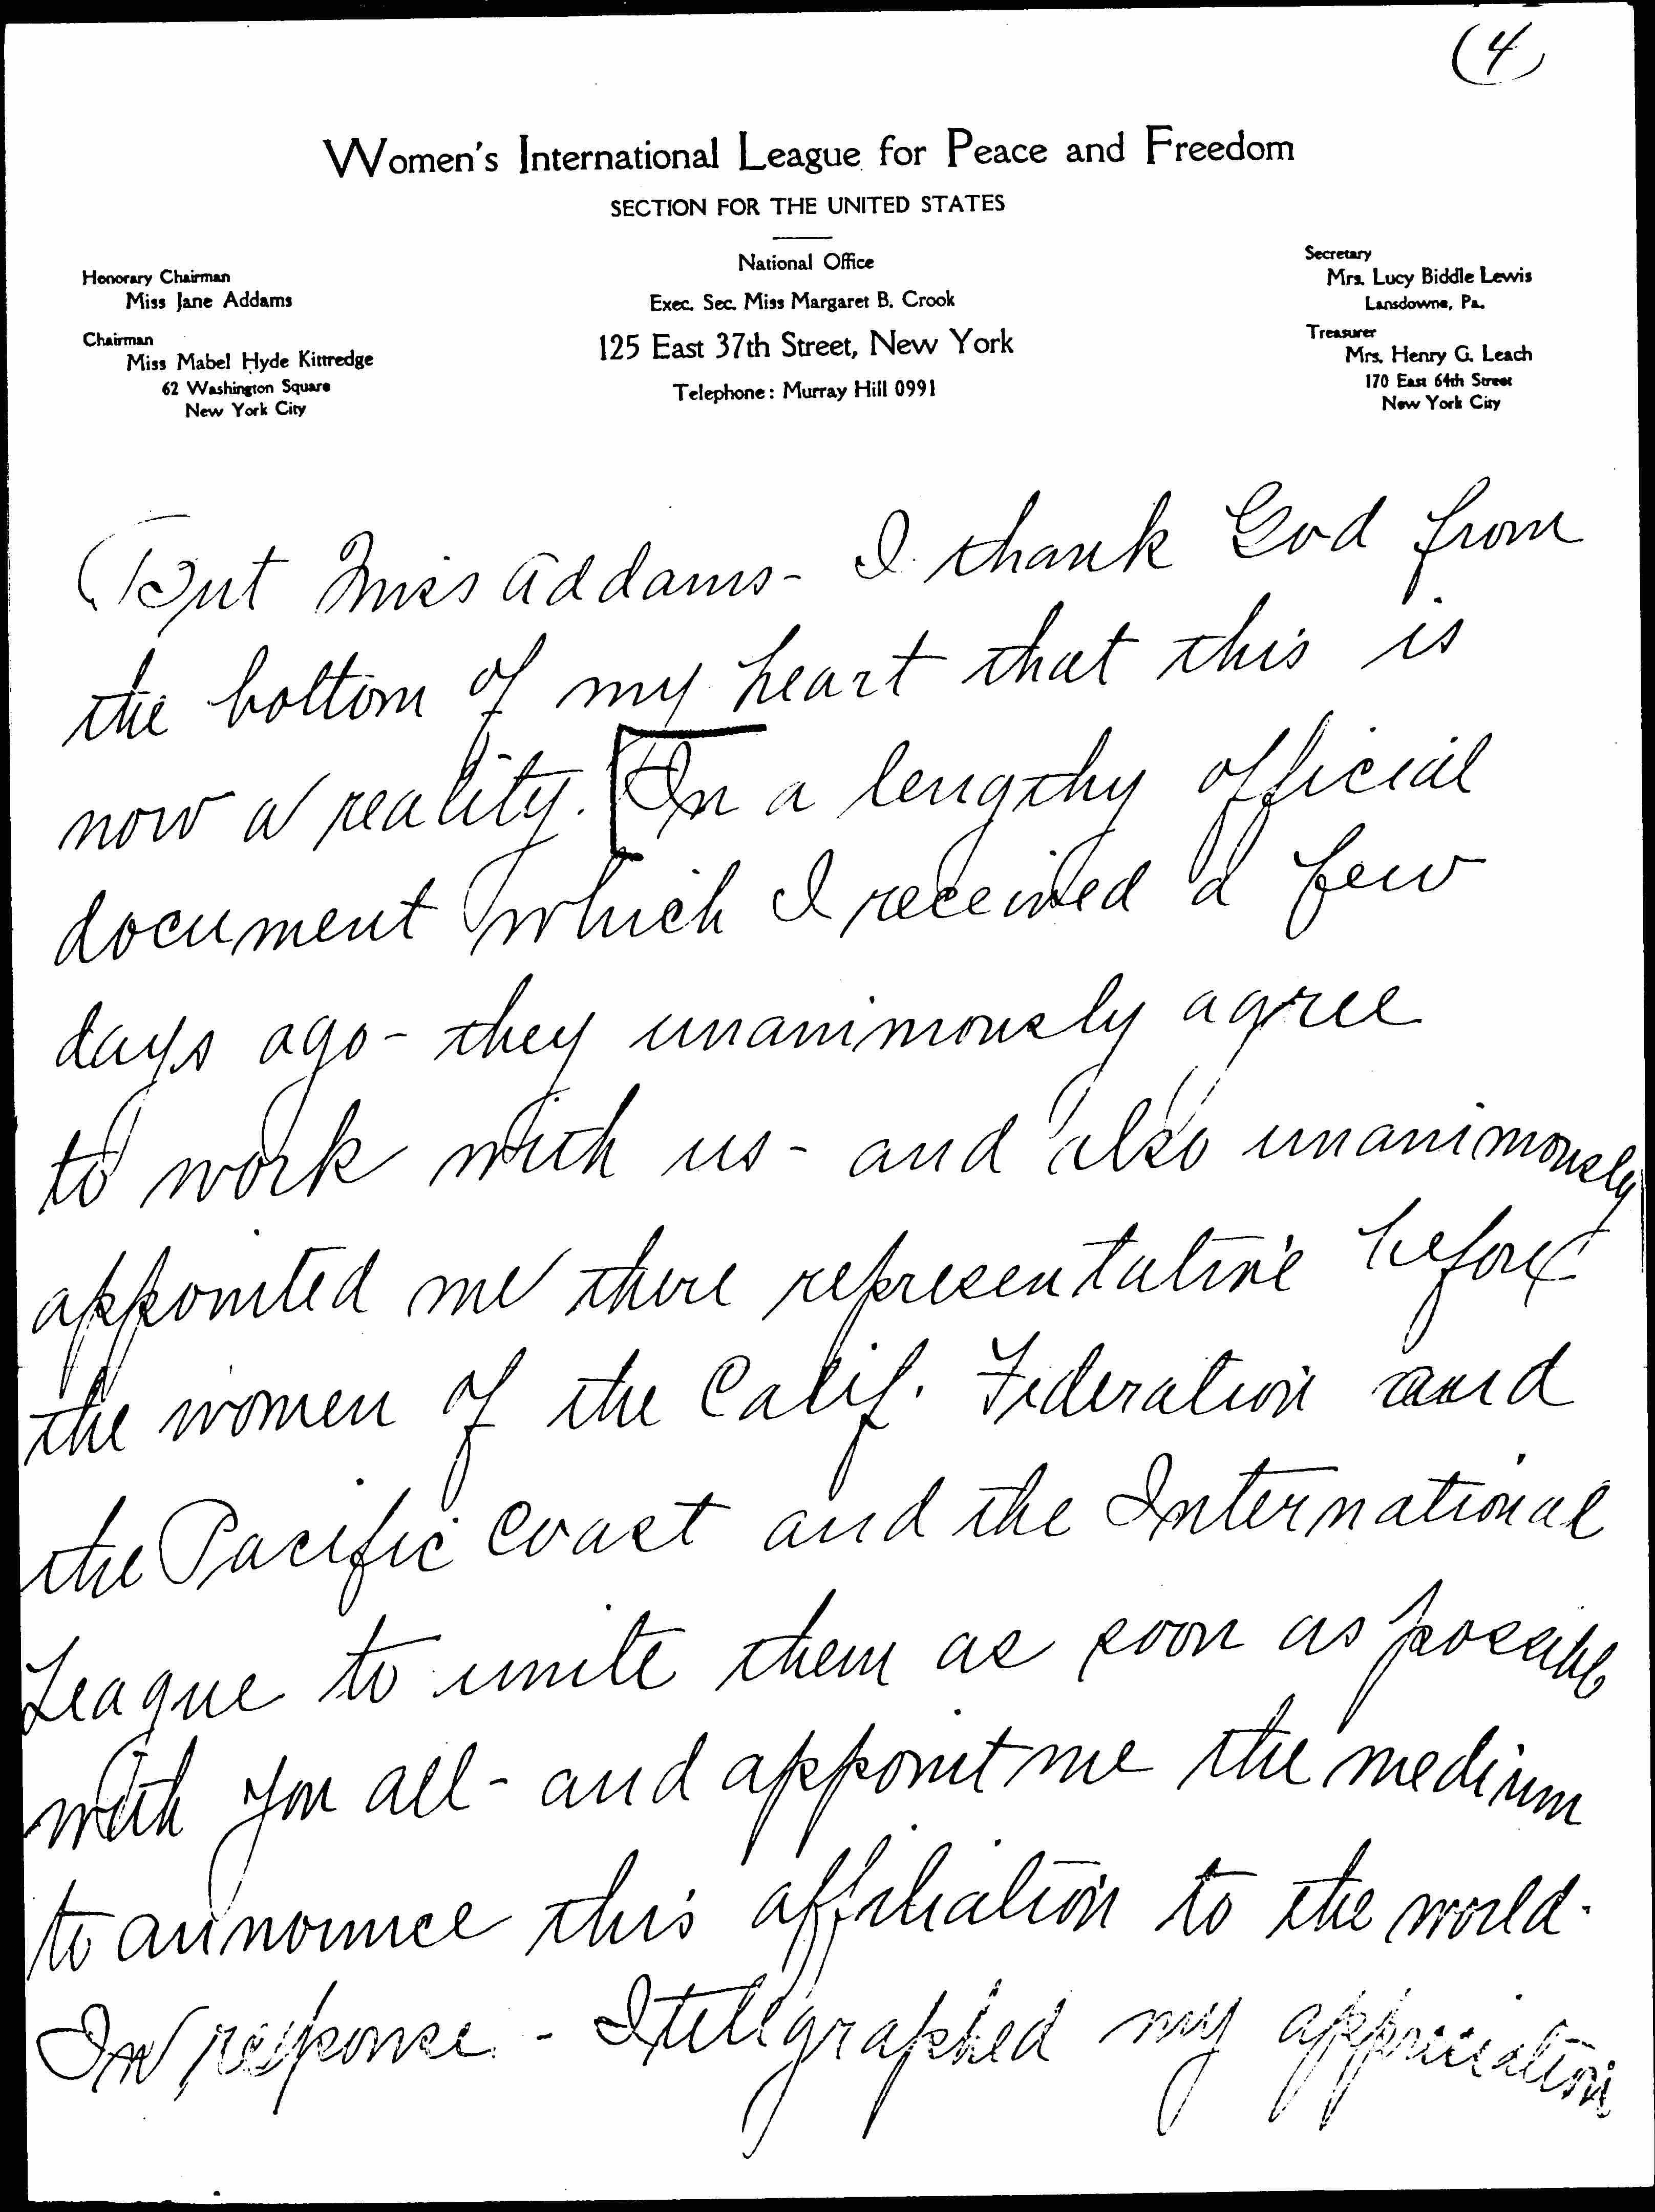 (4)
Women's International League for Peace and Freedom
SECTION FOR THE UNITED STATES
Honorary Chairman
Miss Jane Addams
Chairman
Miss Mabel Hyde Kittredge
62 Washington Square
New York City
National Office
Exec. Sec. Miss Margaret B. Crook
125 East 37th Street, New York
Telephone: Murray Hill 0991
Secretary
Mrs. Lucy Biddle Lewis
Lansdowne, Pa.
Treasurer
Mrs. Henry G. Leach
170 East 64th Street
New York City
But Miss Addams - I thank God from
the bottom of my heart that this is
now a reality. In a lengthy official
document which I received a few
days ago - they unanimously agree
to work with us - and also unanimously
appointed me there representative before
the women of the Calif. Federation and
the Pacific Coast and the International
League to unite them as soon as possible
with you all - and appoint me the medium
to announce this affiliation to the world.
In response - I telegraphed my appreciation